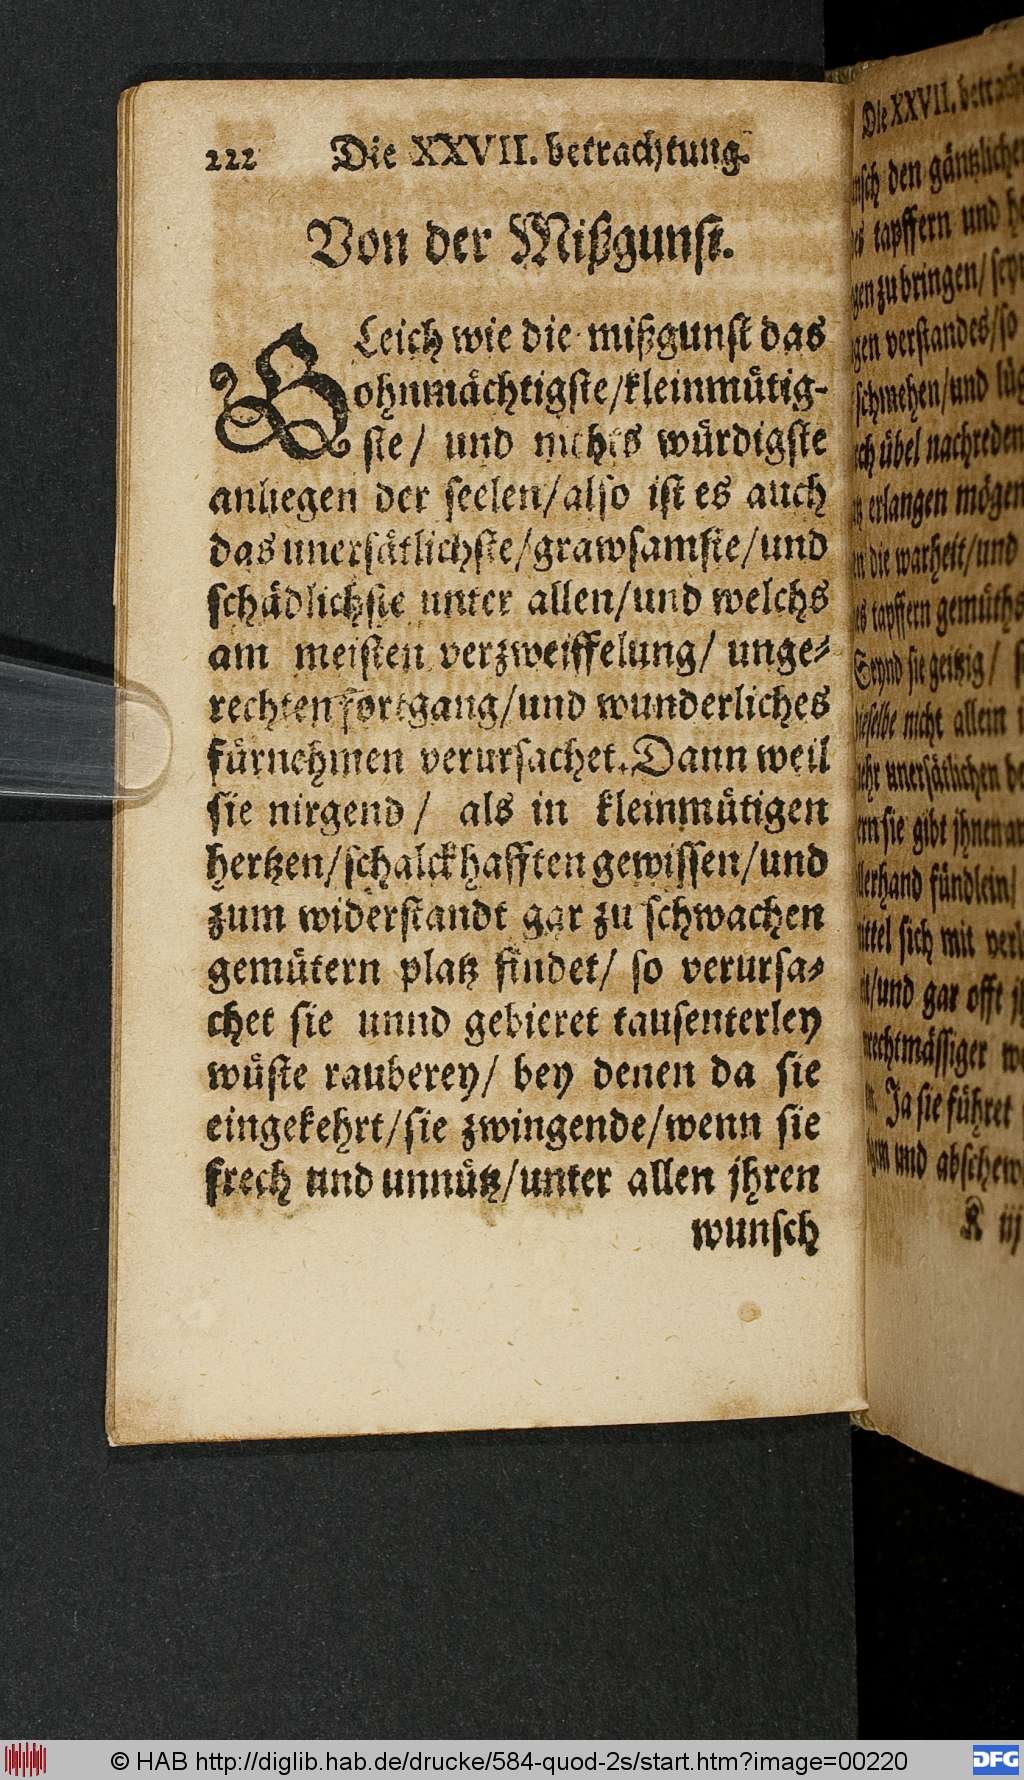 222 Die XXVII. betrachtung.
Von der Mißgunst.
GLeich wie die mißgunst das
ohnmächtigste/kleinmütig-
ste/ und nichts würdigste
anliegen der seelen/also ist es auch
das unersätlichste/grawsamste/und
schädlichste unter allen/und welchs
am meisten verzweiffelung/ unge-
rechten fortgang/und wunderliches
fürnehmen verursachet. Dann weil
sie nirgend/ als in kleinmütigen
hertzen/schalckhafften gewissen/und
zum widerstandt gar zu schwachen
gemütern platz findet/ so verursa-
chet sie unnd gebieret tausenterley
wüste rauberey/ bey denen da sie
eingekehrt/sie zwingende/wenn sie
frech und unnütz/unter allen jhren
wunsch
Die XXVII. betracht
nsch den gäntzlichen
es tapffern und he
gen zubringen/ seyn
gen verstandes/so
schmehen/und lüg
ch übel nachreden
erlangen mögen
in die warheit/und
es tapffern gemüths
Seynd sie geitzig/ s
dieselbe nicht allein
mehr unersätlichen be
ern sie gibt jhnen an
llerhand fündlein/
ittel sich mit verl
t/und gar offt jh
rechtmässiger we
Ja sie führet
und abschew
K iij
© HAB http://diglib.hab.de/drucke/584-quod-2s/start.htm?image=00220
DFG